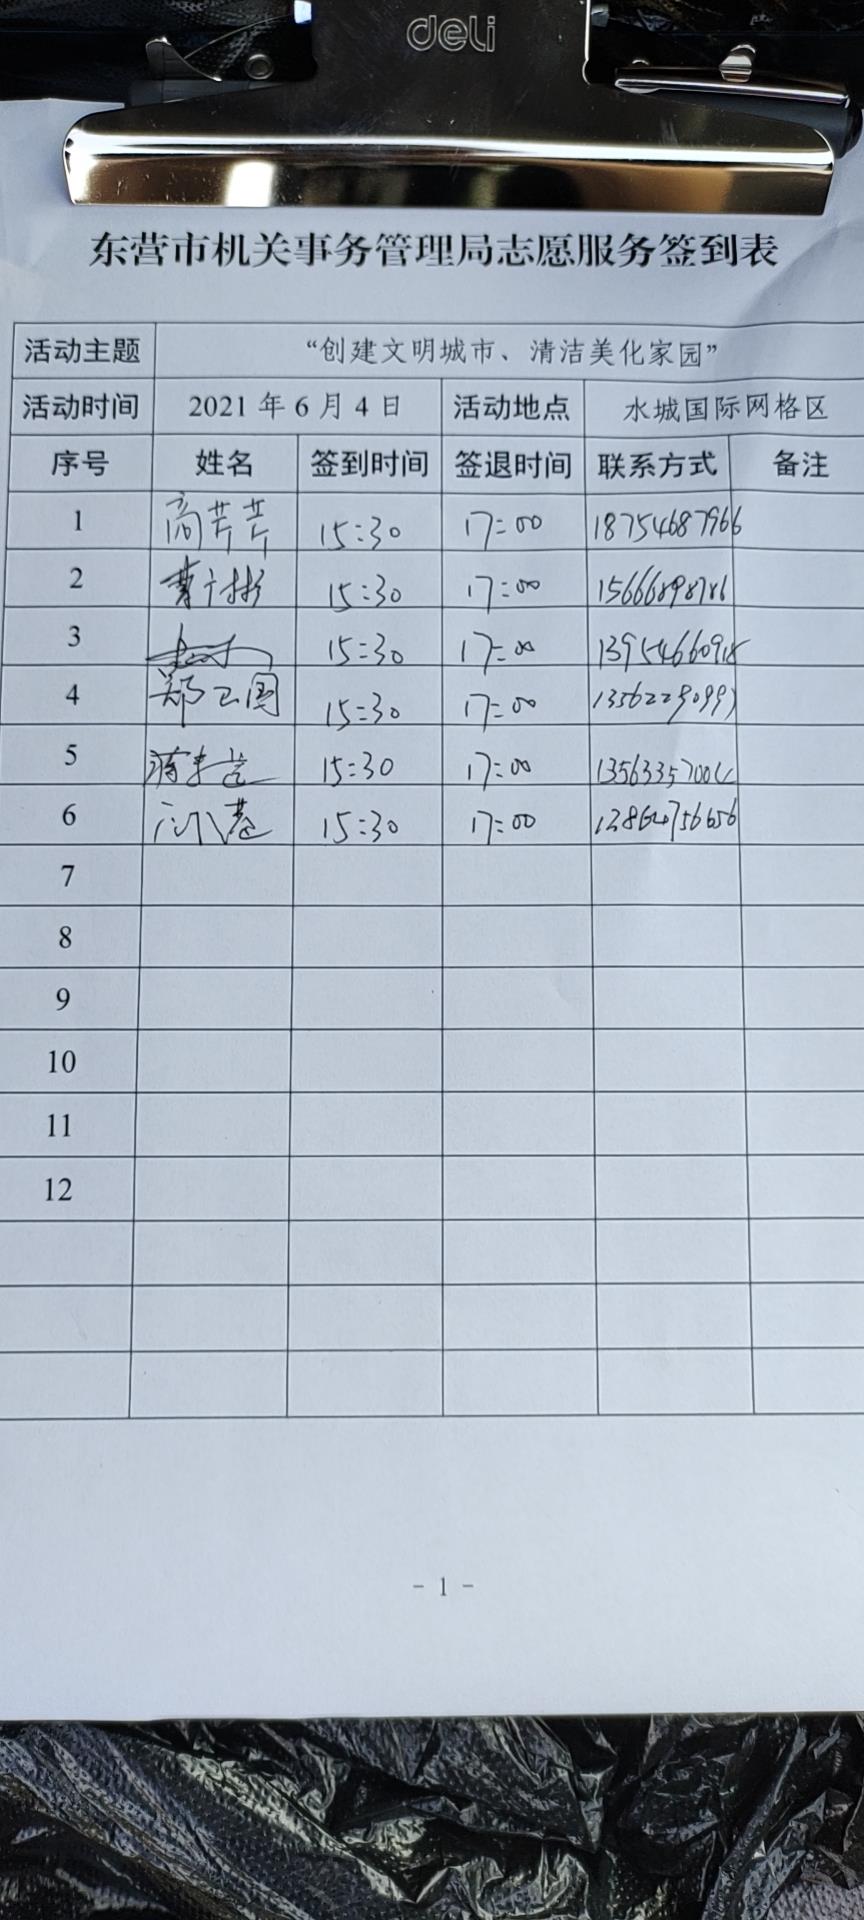 deli
东营市机关事务管理局志愿服务签到表
活动主题 “创建文明城市、清洁美化家园”
活动时间 2021年6月4日 活动地点 水城国际网格区
序号 姓名 签到时间 签退时间 联系方式 备注
1 商芹芹 15:30 17:00 18754687966
2 15:30 17:00 15666898786
3 15:30 17:00
4 郑卫国 15:30 17:00
5 15:30 17:00
6 15:30 17:00
7
8
9
10
11
12
- 1 -